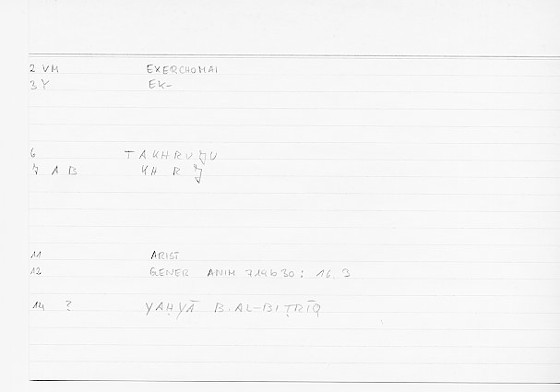 2 VM EXERCHOMAI
3 Y EK-
6 TAKHRUJU
J A B KH R J
11 ARIST
12 GENER ANIM 719b30 : 16.3
14 ? YAḤYĀ B. AL-BIṬRĪQ